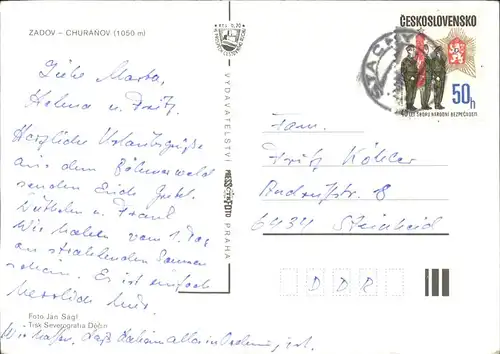 ZADOV – CHURÁŇOV (1050 m)
Liebe Marta,
Helena u. Fritz,
Herzliche Urlaubsgrüße
aus dem Böhmerwald
senden Euch
u.
Wir haben vom 1. Tag
an strahlenden Sonnen
schein. Es ist einfach
herrlich hier.
Foto Ján Ságl
Tisk Severografia Děčín
Wir hoffen, daß bei in Ordnung ist.
VYDAVATELSTVÍ PRESSFOTO PRAHA
ČESKOSLOVENSKO
50h
40 LET SBORU NÁRODNÍ BEZPEČNOSTI
STACHY
Fam.
Fritz Köhler
18
6434 Steinheid
DDR